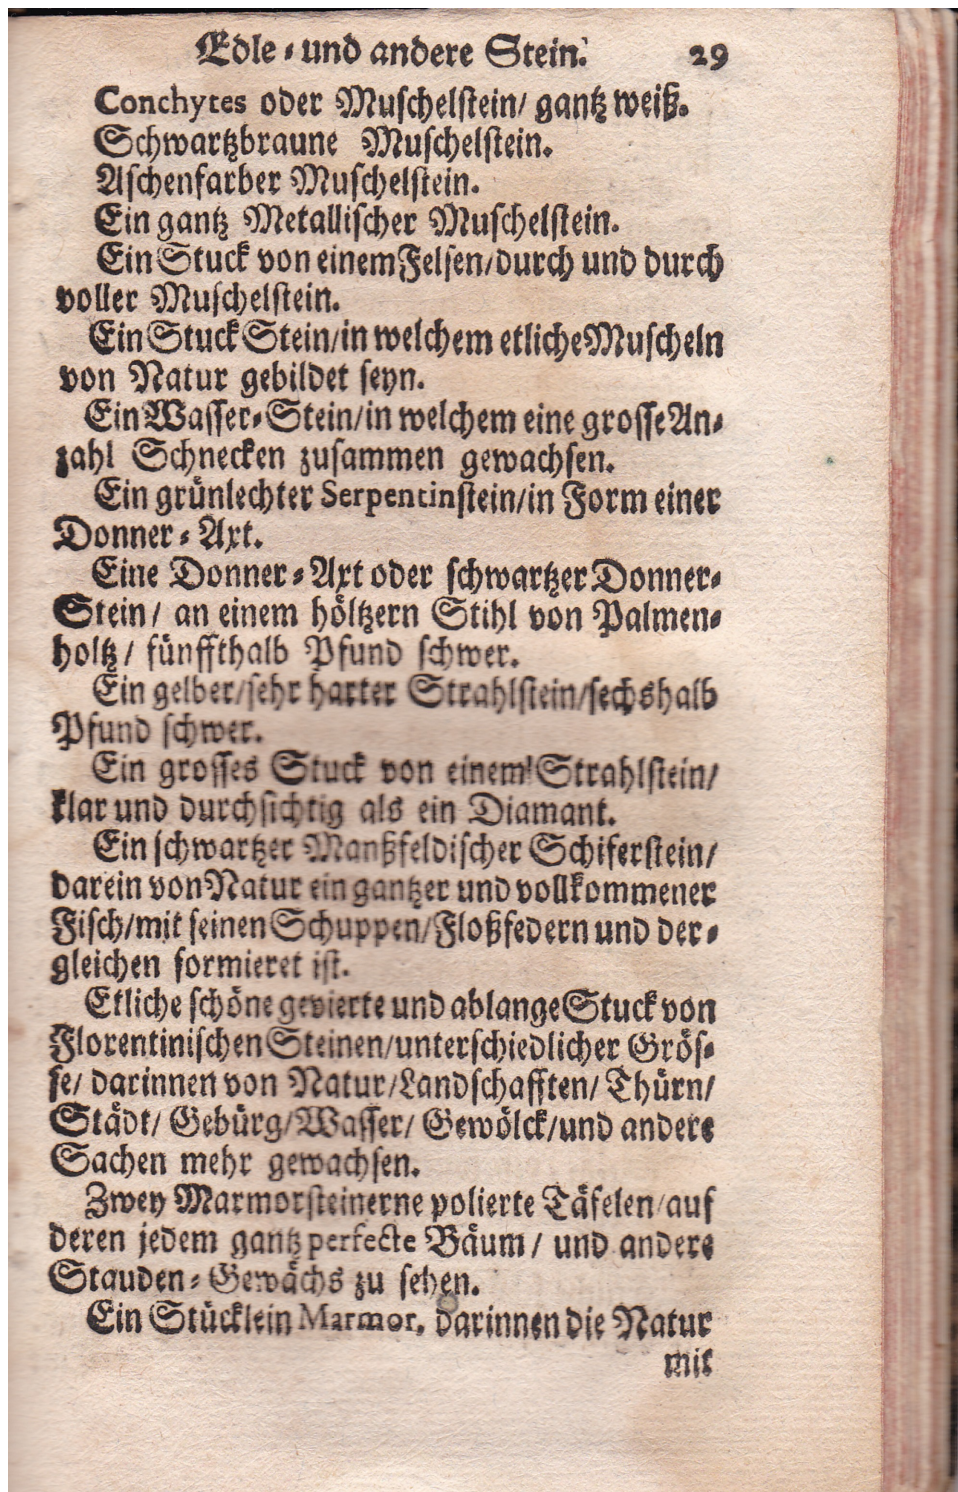 Edle-und andere Stein. 29
Conchytes oder Muschelstein/ gantz weiß.
Schwartzbraune Muschelstein.
Aschenfarber Muschelstein.
Ein gantz Metallischer Muschelstein.
Ein Stuck von einem Felsen/durch und durch
voller Muschelstein.
Ein Stuck Stein/in welchem etliche Muscheln
von Natur gebildet seyn.
Ein Wasser-Stein/in welchem eine grosse An-
zahl Schnecken zusammen gewachsen.
Ein grünlechter Serpentinstein/in Form einer
Donner-Axt.
Eine Donner-Axt oder schwartzer Donner-
Stein/ an einem höltzern Stihl von Palmen-
holtz/ fünffthalb Pfund schwer.
Ein gelber/sehr harter Strahlstein/sechshalb
Pfund schwer.
Ein grosses Stuck von einem Strahlstein/
klar und durchsichtig als ein Diamant.
Ein schwartzer Manßfeldischer Schiferstein/
darein von Natur ein gantzer und vollkommener
Fisch/mit seinen Schuppen/Floßfedern und der-
gleichen formieret ist.
Etliche schöne gevierte und ablange Stuck von
Florentinischen Steinen/unterschiedlicher Grös-
se/ darinnen von Natur/Landschafften/ Thürn/
Städt/ Gebürg/Wasser/ Gewölck/und andere
Sachen mehr gewachsen.
Zwey Marmorsteinerne polierte Täfelen/auf
deren jedem gantz perfecte Bäum/ und andere
Stauden-Gewächs zu sehen.
Ein Stücklein Marmor, darinnen die Natur
mit